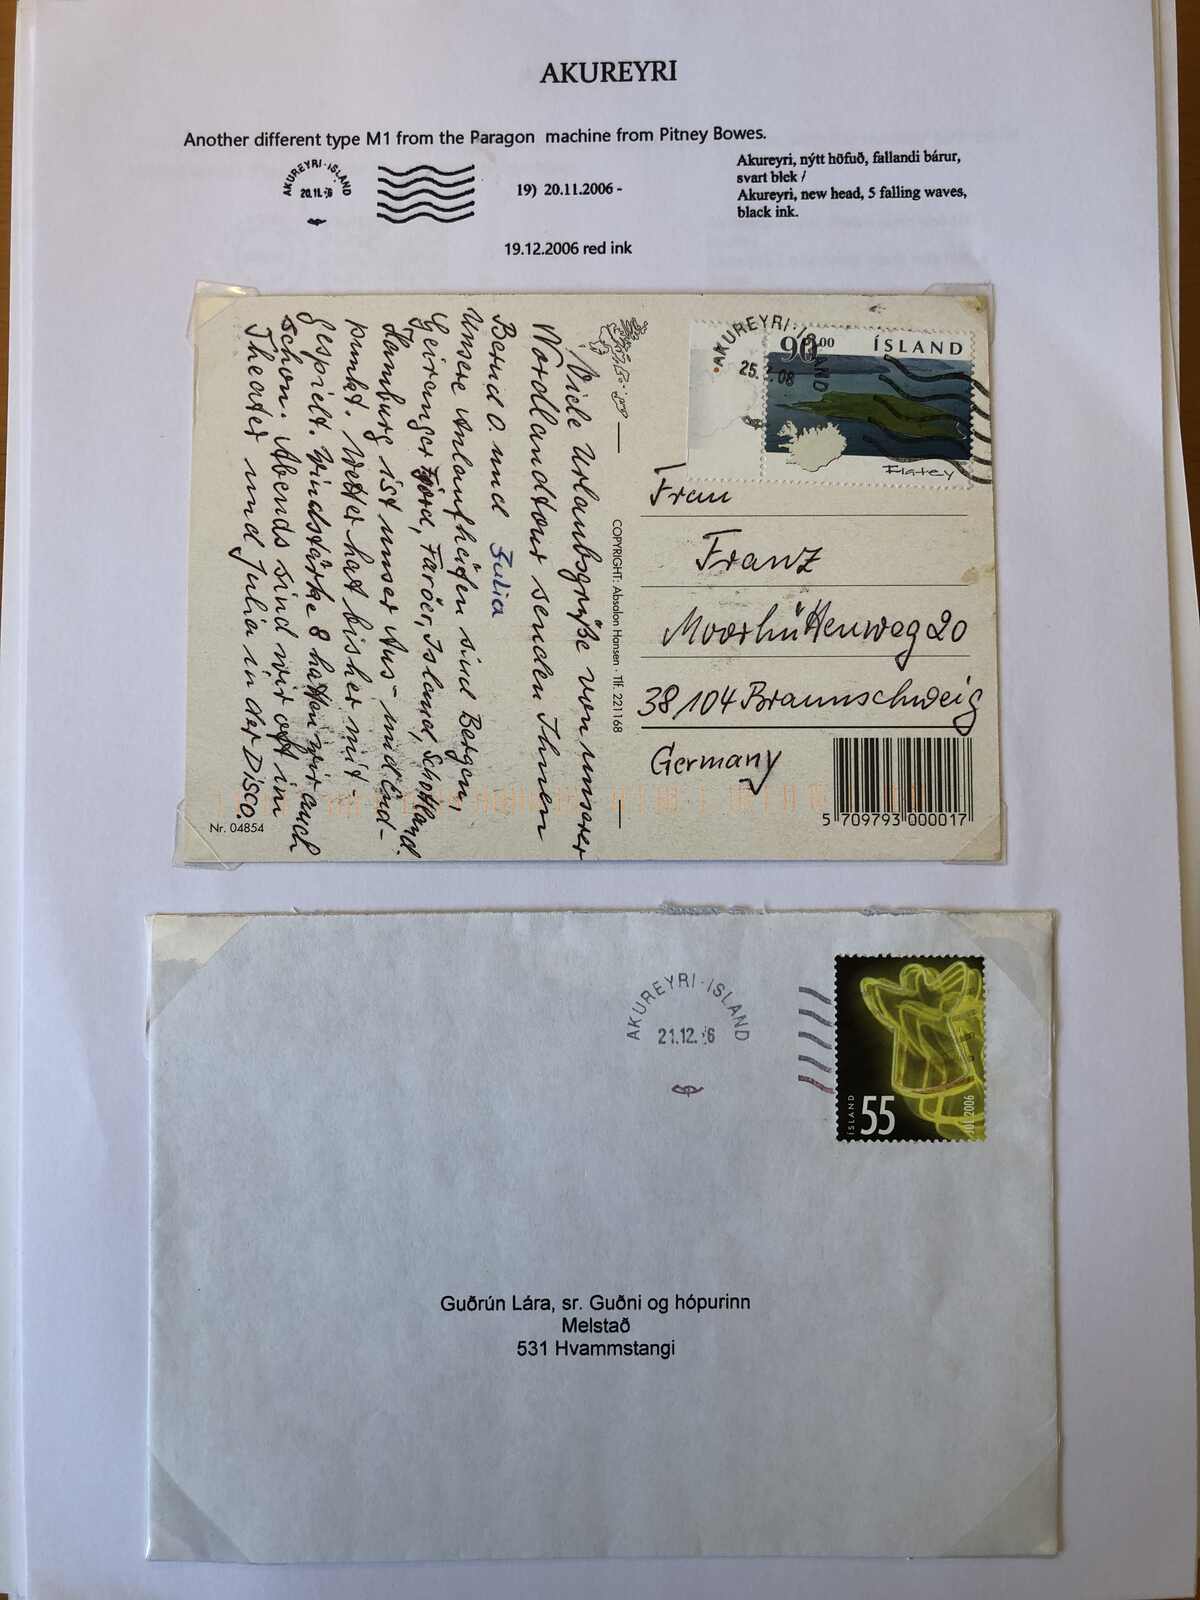 AKUREYRI
Another different type M1 from the Paragon machine from Pitney Bowes.
AKUREYRI · ÍSLAND
20.11. 6
19) 20.11.2006 -
Akureyri, nýtt höfuð, fallandi bárur,
svart blek /
Akureyri, new head, 5 falling waves,
black ink.
19.12.2006 red ink
Viele Urlaubsgrüße von unserer
Nordlandtour senden Ihnen
Bernd O. und Julia
Unsere Anlaufhäfen sind Bergen,
Geiranger Fjord, Färöer, Island, Schottland.
Hamburg ist unser Aus- und End-
punkt. Wetter hat bisher mit-
gespielt. Windstärke 8 hatten wir auch
schon. Abends sind wir oft im
Theater und Julia in der Disco.
Nr. 04854
COPYRIGHT: Absalon Hansen · Tlf. 221168
AKUREYRI · ÍSLAND
25. 7. 08
90 00 ÍSLAND
Flatey
Frau
Franz
Moorhüttenweg 20
38104 Braunschweig
Germany
5 709793 000017
AKUREYRI · ÍSLAND
21.12. 6
ÍSLAND
55
JÓL 2006
Guðrún Lára, sr. Guðni og hópurinn
Melstað
531 Hvammstangi